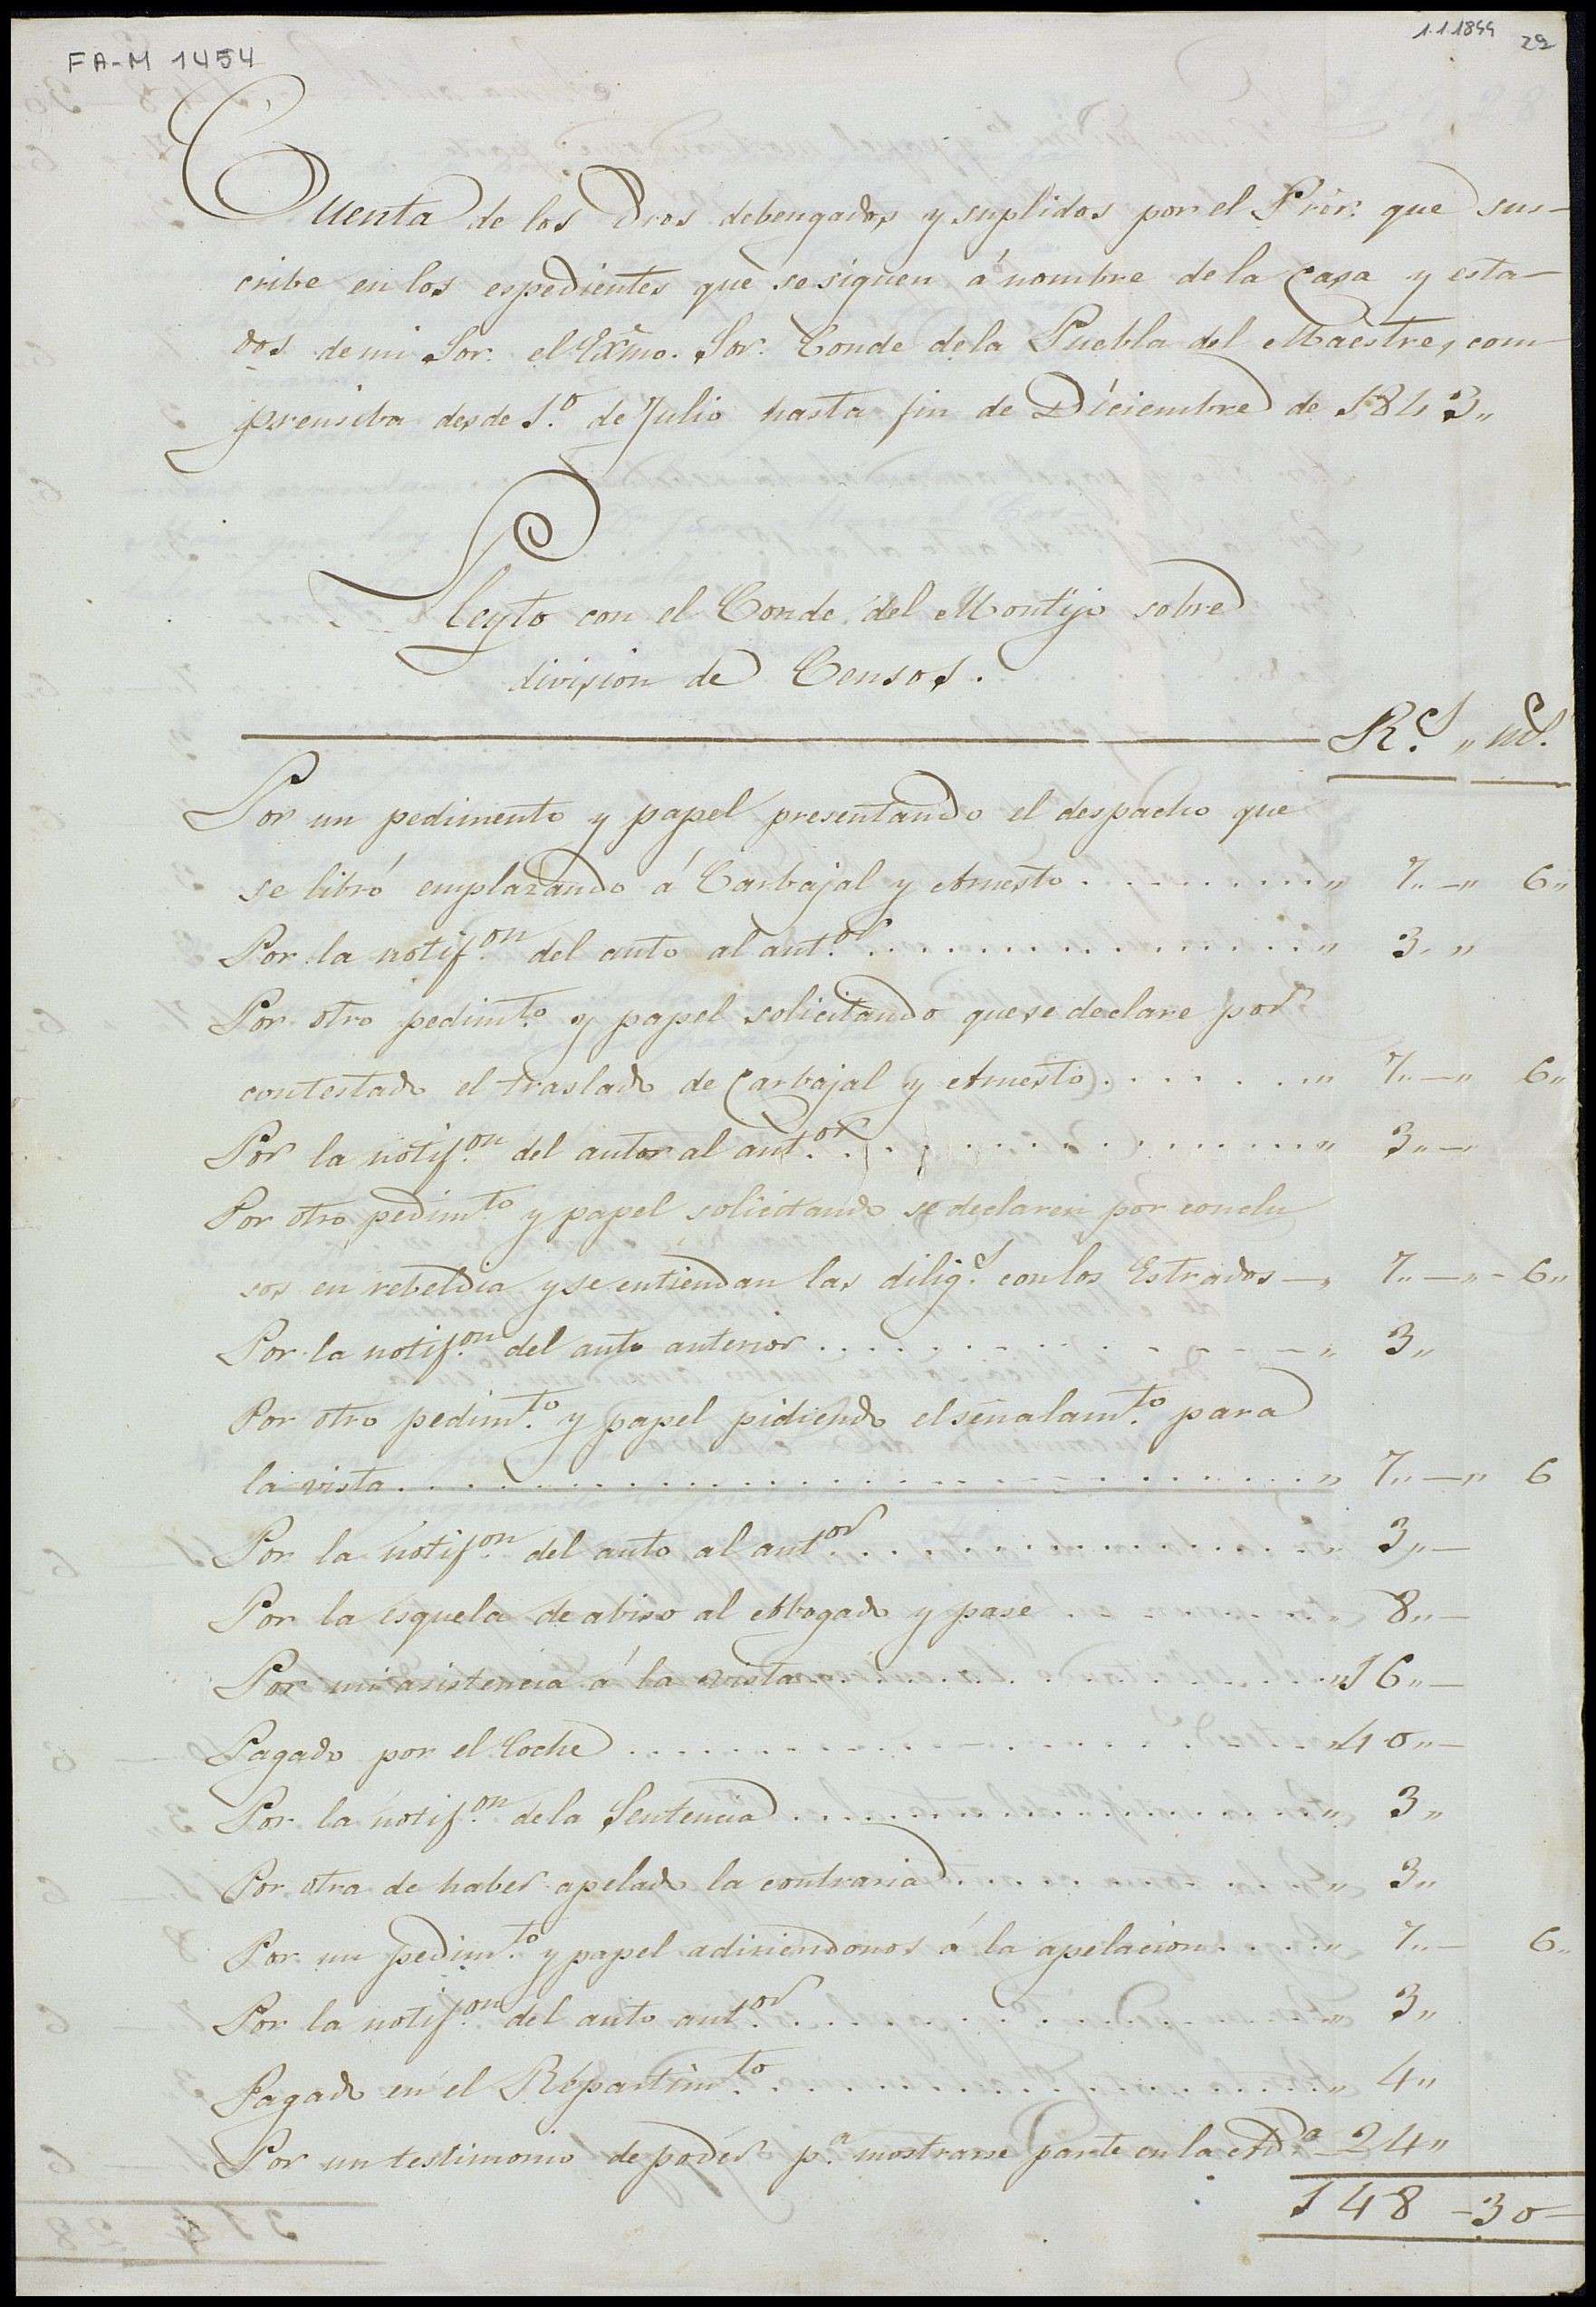 FA-M 1454
1.1.1844 29
Cuenta de los Dros debengados y suplidos por el Prór. que sus-
cribe en los espedientes que se siguen á nombre de la casa y esta-
dos de mi Sor. el Exmo. Sor. Conde de la Puebla del Maestre, com-
prensiba desde 1.º de Julio hasta fin de Diciembre de 1843„
Pleyto con el Conde del Montijo sobre
division de Censos.
R.s „ ms.
Por un pedimento y papel presentando el despacho que
se libró emplazando á Carbajal y Arnesto . . . . . . . . . „ 7„ —„ 6„
Por la notif.on del auto al ant.or . . . . . . . . . . . . . . „ 3„ „
Por otro pedimt.o y papel solicitando que se declare por
contestado el traslado de Carbajal y Arnesto . . . . . . . „ 7„ —„ 6„
Por la notif.on del autor al ant.or . . . . . . . . . . . . . . „ 3„ —„
Por otro pedimt.o y papel solicitando se declaren por conclu
sos en rebeldia y se entiendan las dilig.s con los Estrados —„ 7„ —„ - 6„
Por la notif.on del auto anterior . . . . . . . . - . - - — „ 3„
Por otro pedimt.o y papel pidiendo el señalamt.o para
la vista . . . . . . . . . . . . . . . . . . . . . . . . . . . . „ 7„ —„ 6
Por la notif.on del auto al ant.or . . . . . . . . . . . . . . „ 3„ —
Por la esquela de abiso al Abogado y pase . . . . . . . . . „ 8„ —
Por mi asistencia á la vista . . . . . . . . . . . . . . . . „ 16„ —
Pagado por el Coche . . . . . . . . . . . . . . . . . . . . „ 40„ —
Por la notif.on de la Sentencia . . . . . . . . . . . . . . . „ 3„
Por otra de haber apelado la contraria . . . . . . . . . . . „ 3„
Por un pedimt.o y papel adiriendonos á la apelacion . . . . „ 7„ — 6„
Por la notif.on del auto ant.or . . . . . . . . . . . . . . . „ 3„
Pagado en el Repartimt.o . . . . . . . . . . . . . . . . . „ 4„
Por un testimonio de poder p.a mostrarse parte en la Ad.a 24„
148 - 30 =